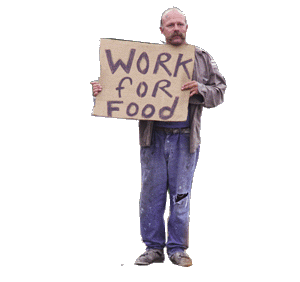 WORK
foR
FOOD